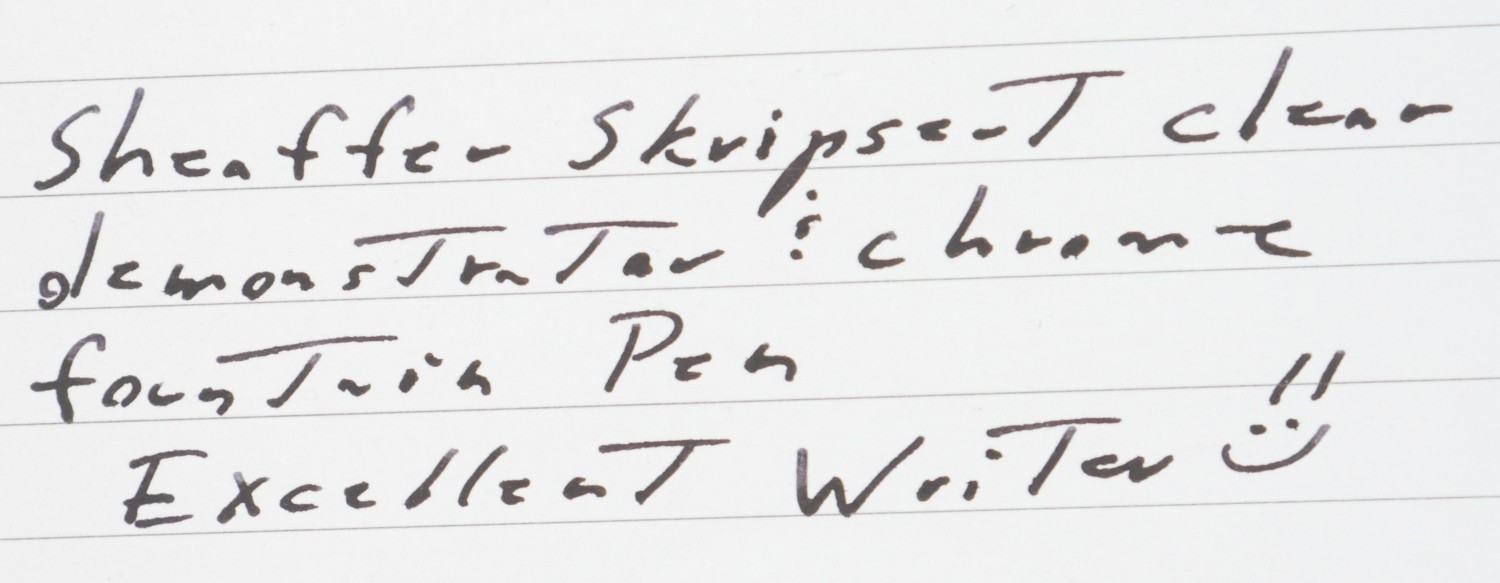 Sheaffer Skripsert clear
demonstrator & chrome
fountain Pen
Excellent Writer !!